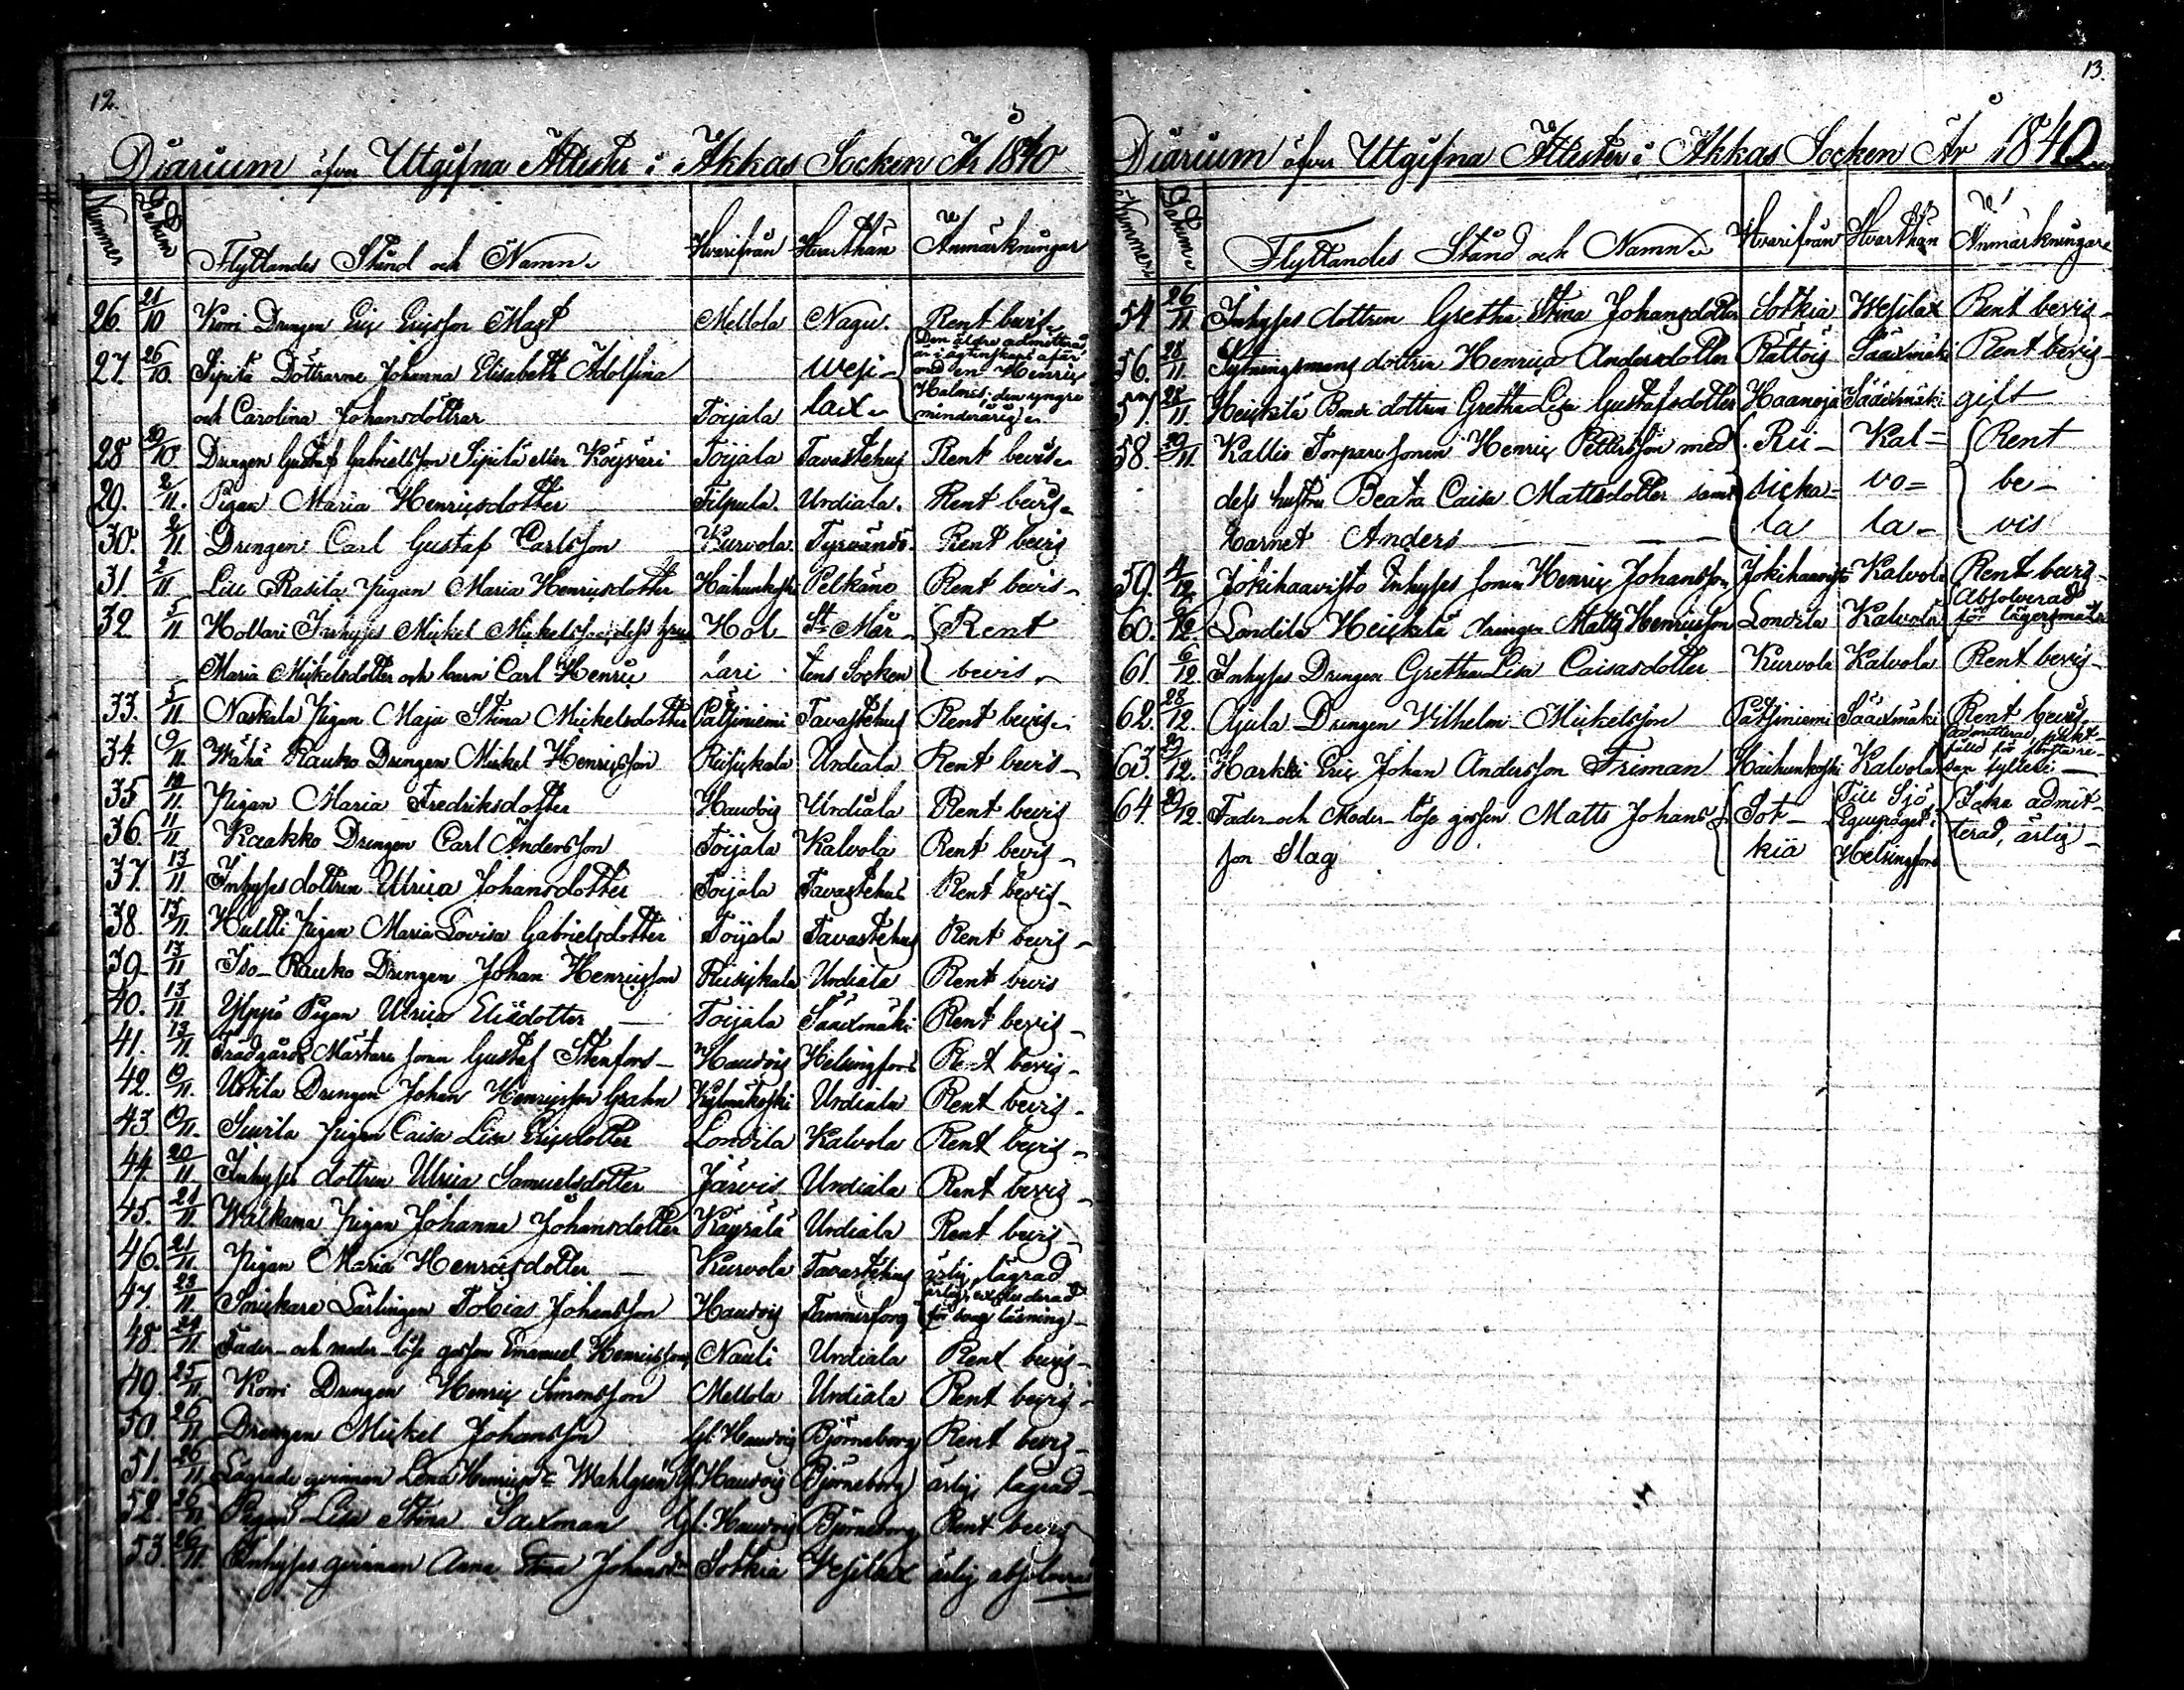 12.
Diarium öfver Utgifna Attester i Akkas Socken År 1840
Nummer Datum Flyttandes Stånd och Namn. Hvarifrån Hvarthän Anmärkningar
26. 21/10 Komi Drengen Eric Ericsson Mast Mellola Nagu. Rent bevis.
27. 26/10. Sipilä Döttrarne Johanna Elisabeth Adolfina wesi- Den äldre admitterad är i ägtenskaps afär med en Henric
och Carolina Johansdöttrar Toijala lax. Halmet; den yngre minderårig.
28 29/10 Drengen Gustaf Gabrielsson Sipilä eller Koijväri Toijala Tavastehus Rent bevis.
29. 2/11. Pigan Maria Henricsdotter Tilpula. Urdiala. Rent bevis.
30. 2/11 Drengen Carl Gustaf Carlsson Kurvola. Tyrvändö. Rent bevis
31. 2/11 Lill Rasila pigan Maria Henricsdotter Haihunkoski Pelkäne Rent bevis.
32. 5/11 Hollari Inhyses Mickel Mickelsson, dess hustru Hol- St Mår- Rent
Maria Mickelsdotter och barn Carl Henric lari tens Socken bevis.
33. 5/11 Naskala Pigan Maja Stina Mickelsdotter Pätsiniemi Tavastehus Rent bevis.
34. 9/11. Wähä Rauko Drengen Mickel Henricsson Riisickala Urdiala Rent bevis.
35 10/11. Pigan Maria Fredriksdotter Handois Urdiala Rent bevis
36. 11/11 Kaakko Drengen Carl Andersson Toijala Kalvola Rent bevis.
37. 13/11. Inhyses dottren Ulrica Johansdotter Toijala Tavastehus Rent bevis.
38. 13/11. Hultti Pigan Maria Lovisa Gabrielsdotter Toijala Tavastehus Rent bevis.
39 13/11 Iso-Rauko Drengen Johan Henricsson Riisickala Urdiala Rent bevis
40. 13/11 Yppö Pigan Ulrica Eliædotter Toijala Sääxmäki Rent bevis.
41. 13/11. Trädgårds Mästare sonen Gustaf Stenfors Handois Helsingfors Rent bevis.
42. 19/11. Uotila Drengen Johan Henricsson Grahn Kylmäkoski Urdiala Rent bevis.
43 19/11. Suvila pigan Caisa Lisa Ericsdotter Londila Kalvola Rent bevis.
44. 20/11. Inhyses dottren Ulrica Samuelsdotter Järvis Urdiala Rent bevis.
45. 21/11. Walkama pigan Johanna Johansdotter Käyrälä Urdiala Rent bevis.
46. 21/11. Pigan Maria Henricsdotter Kurvola Tavastehus ärlig, lägrad
47. 23/11. Snickare Lärlingen Tobias Johansson Handois Tammerfors ärlig, excluderad för svag läsning.
48. 24/11. Fader- och moder-löse gossen Emanuel Henricsson Nauli Urdiala Rent bevis.
49. 25/11. Komi Drengen Henric Simonsson Mellola Urdiala Rent bevis.
50. 26/11 Drengen Mickel Johansson Gl. Handois Björneborg Rent bevis.
51. 26/11 Lägrade qvinnan Lena Henricsd: Wahlgren Gl. Handois Björneborg ärlig, lägrad.
52. 26/11 Pigan Lisa Stina Saxman Gl. Handois Björneborg Rent bevis
53. 26/11. Inhyses qvinnan Anna Stina Johansd: Sotkia Vesilax ärlig absolverad
13.
Diarium öfver Utgifna Attester i Akkas Socken År 1840
Nummer Datum Flyttandes Stånd och Namn. Hvarifrån Hvarthän Anmärkningar
54 26/11 Inhyses dottren Gretha Stina Johansdotter Sotkia Wesilax Rent bevis.
56. 28/11. Sytningsmans dottren Henrica Andersdotter Rättöis Sääxmäki Rent bevis.
57. 28/11. Heickilä Bonde dottren Gretha Lisa Gustafsdotter Haanoja Sääxmäki gift
58. 29/11. Kallio Torpare sonen Henric Pettersson med Rii- Kal- Rent
dess hustru Beata Caisa Mattsdotter samt sicka- vo- be-
barnet Anders la la. vis
59. 4/12. Jokihaavisto Inhyses sonen Henric Johansson Jokihaavisto Kalvola Rent bevis.
60. 6/12. Londila Heickilä drengen Matts Henricsson Londila Kalvola Absolverad för lägersmål.
61. 6/12 Inhyses Drengen Gretha Lisa Caisasdotter Kurvola Kalvola Rent bevis.
62. 28/12. Ajula Drengen Wilhelm Mickelsson Pätsiniemi Sääxmäki Rent bevis.
63. 29/12. Harkki Eric Johan Andersson Friman Haihunkoski Kalvola admitterad, sakfälld för första resan fylleri
64. 29/12. Fader- och Moder-löse gossen Matts Johans- Sot- Till Sjö Icke admit-
son Slag kia Equipaget i Helsingfors terad, ärlig.